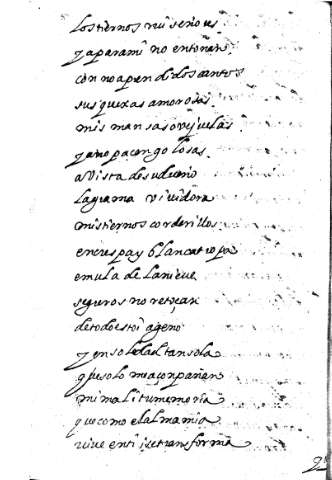 los tiernos rui señores
ya para mi no entonan
con no aprendidos cantos
sus quexas amorosas.
mis mansas ovejuelas
ya no pacen golosas.
a vista de su dueno
la grama vividora
mis tiernos corderillos
en crespa y blanca tropa
emula de la nieve
seguros no retoçan
de todo estoi ageno
y en soledad tan sola
que solo me aconpañan
mi mal i tu memoria
que como el alma mia
vive en ti i se transforma